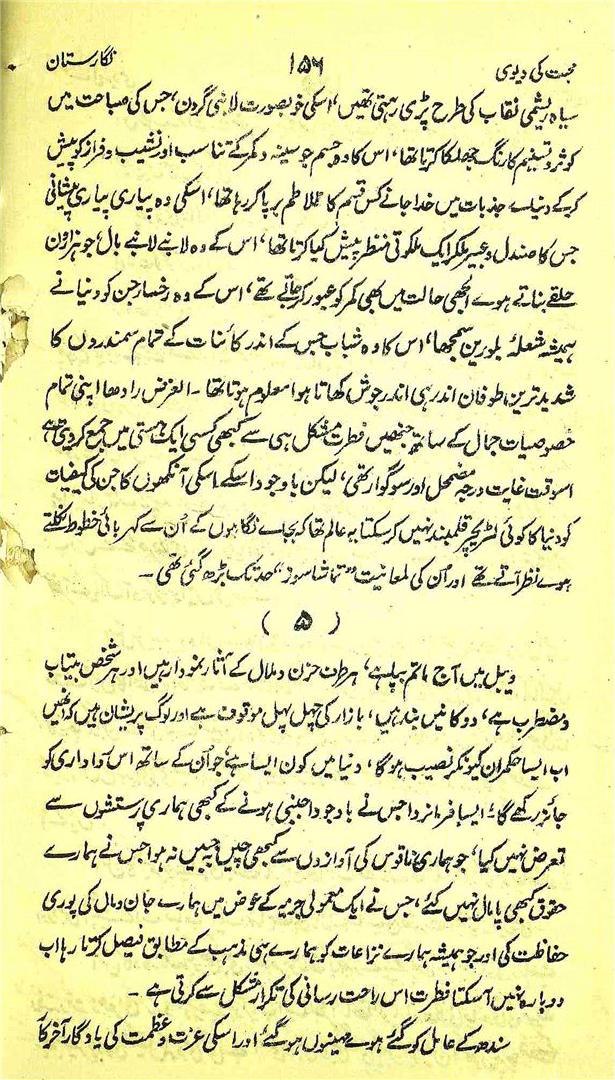 محبت کی دیوی ۱۵۶ نگارستان
سیاہ ریشمی نقاب کی طرح پڑی رہتی تھیں، اسکی خوبصورت لانبی گردن، جس کی صباحت میں
کوثر و تسنیم کا رنگ جھلکا کرتا تھا، اس کا وہ جسم جو سینہ و کمر کے تناسب اور نشیب و فراز کو پیش
کر کے دنیاے جذبات میں خدا جانے کس قسم کا تلاطم برپا کر رہا تھا، اسکی وہ پیاری پیاری پیشانی
جس کا صندل و عبیر ملکر ایک ملکوتی منظر پیش کیا کرتا تھا، اس کے وہ لانبے لانبے بال، جو ہزاروں
حلقے بناتے ہوے الجھی حالت میں بھی کمر کو عبور کر جاتے تھے، اس کے وہ رخسار جن کو دنیا نے
ہمیشہ شعلۂ بلورین سمجھا، اس کا وہ شباب جس کے اندر کائنات کے تمام سمندروں کا
شدید ترین طوفان اندر ہی اندر جوش کھاتا ہوا معلوم ہوتا تھا۔ الغرض رادھا اپنی تمام
خصوصیات جمال کے ساتھ جنھیں فطرت مشکل ہی سے کبھی کسی ایک ہستی میں جمع کر دیتی ہے
اسوقت غایت درجہ مضمحل اور سوگوار تھی، لیکن باوجود اسکے اسکی آنکھوں کا جن کی کیفیات
کو دنیا کا کوئی لٹریچر قلمبند نہیں کر سکتا یہ عالم تھا کہ بجاے نگاہوں کے اُن سے کہربائی خطوط نکلتے
ہوے نظر آتے تھے اور اُن کی لمعانیت "تماشا سوز" حد تک بڑھ گئی تھی۔
(۵)
دیبل میں آج ماتم بپا ہے، ہر طرف حزن و ملال کے آثار نمودار ہیں اور ہر شخص بیتاب
و مضطرب ہے، دوکانیں بند ہیں، بازار کی چہل پہل موقوف ہے اور لوگ پریشان ہیں کہ انھیں
اب ایسا حکمران کیونکر نصیب ہو گا، دنیا میں کون ایسا ہے جو اُن کے ساتھ اس آزادی کو
جائز رکھے گا؛ ایسا فرمانروا جس نے باوجود اجنبی ہونے کے کبھی ہماری پرستشوں سے
تعرض نہیں کیا، جو ہماری ناقوس کی آوازوں سے کبھی چیں بجبیں نہ ہوا جس نے ہمارے
حقوق کبھی پامال نہیں کئے، جس نے ایک معمولی جزیہ کے عوض میں ہمارے جان و مال کی پوری
حفاظت کی اور جو ہمیشہ ہمارے نزاعات کو ہمارے ہی مذہب کے مطابق فیصل کرتا رہا اب
دوبارہ نہیں آسکتا فطرت اس راحت رسانی کی تکرار مشکل سے کرتی ہے۔
سندھ کے عامل کو گئے ہوے مہینوں ہو گئے، اور اسکی عزت و عظمت کی یادگار آخر کا